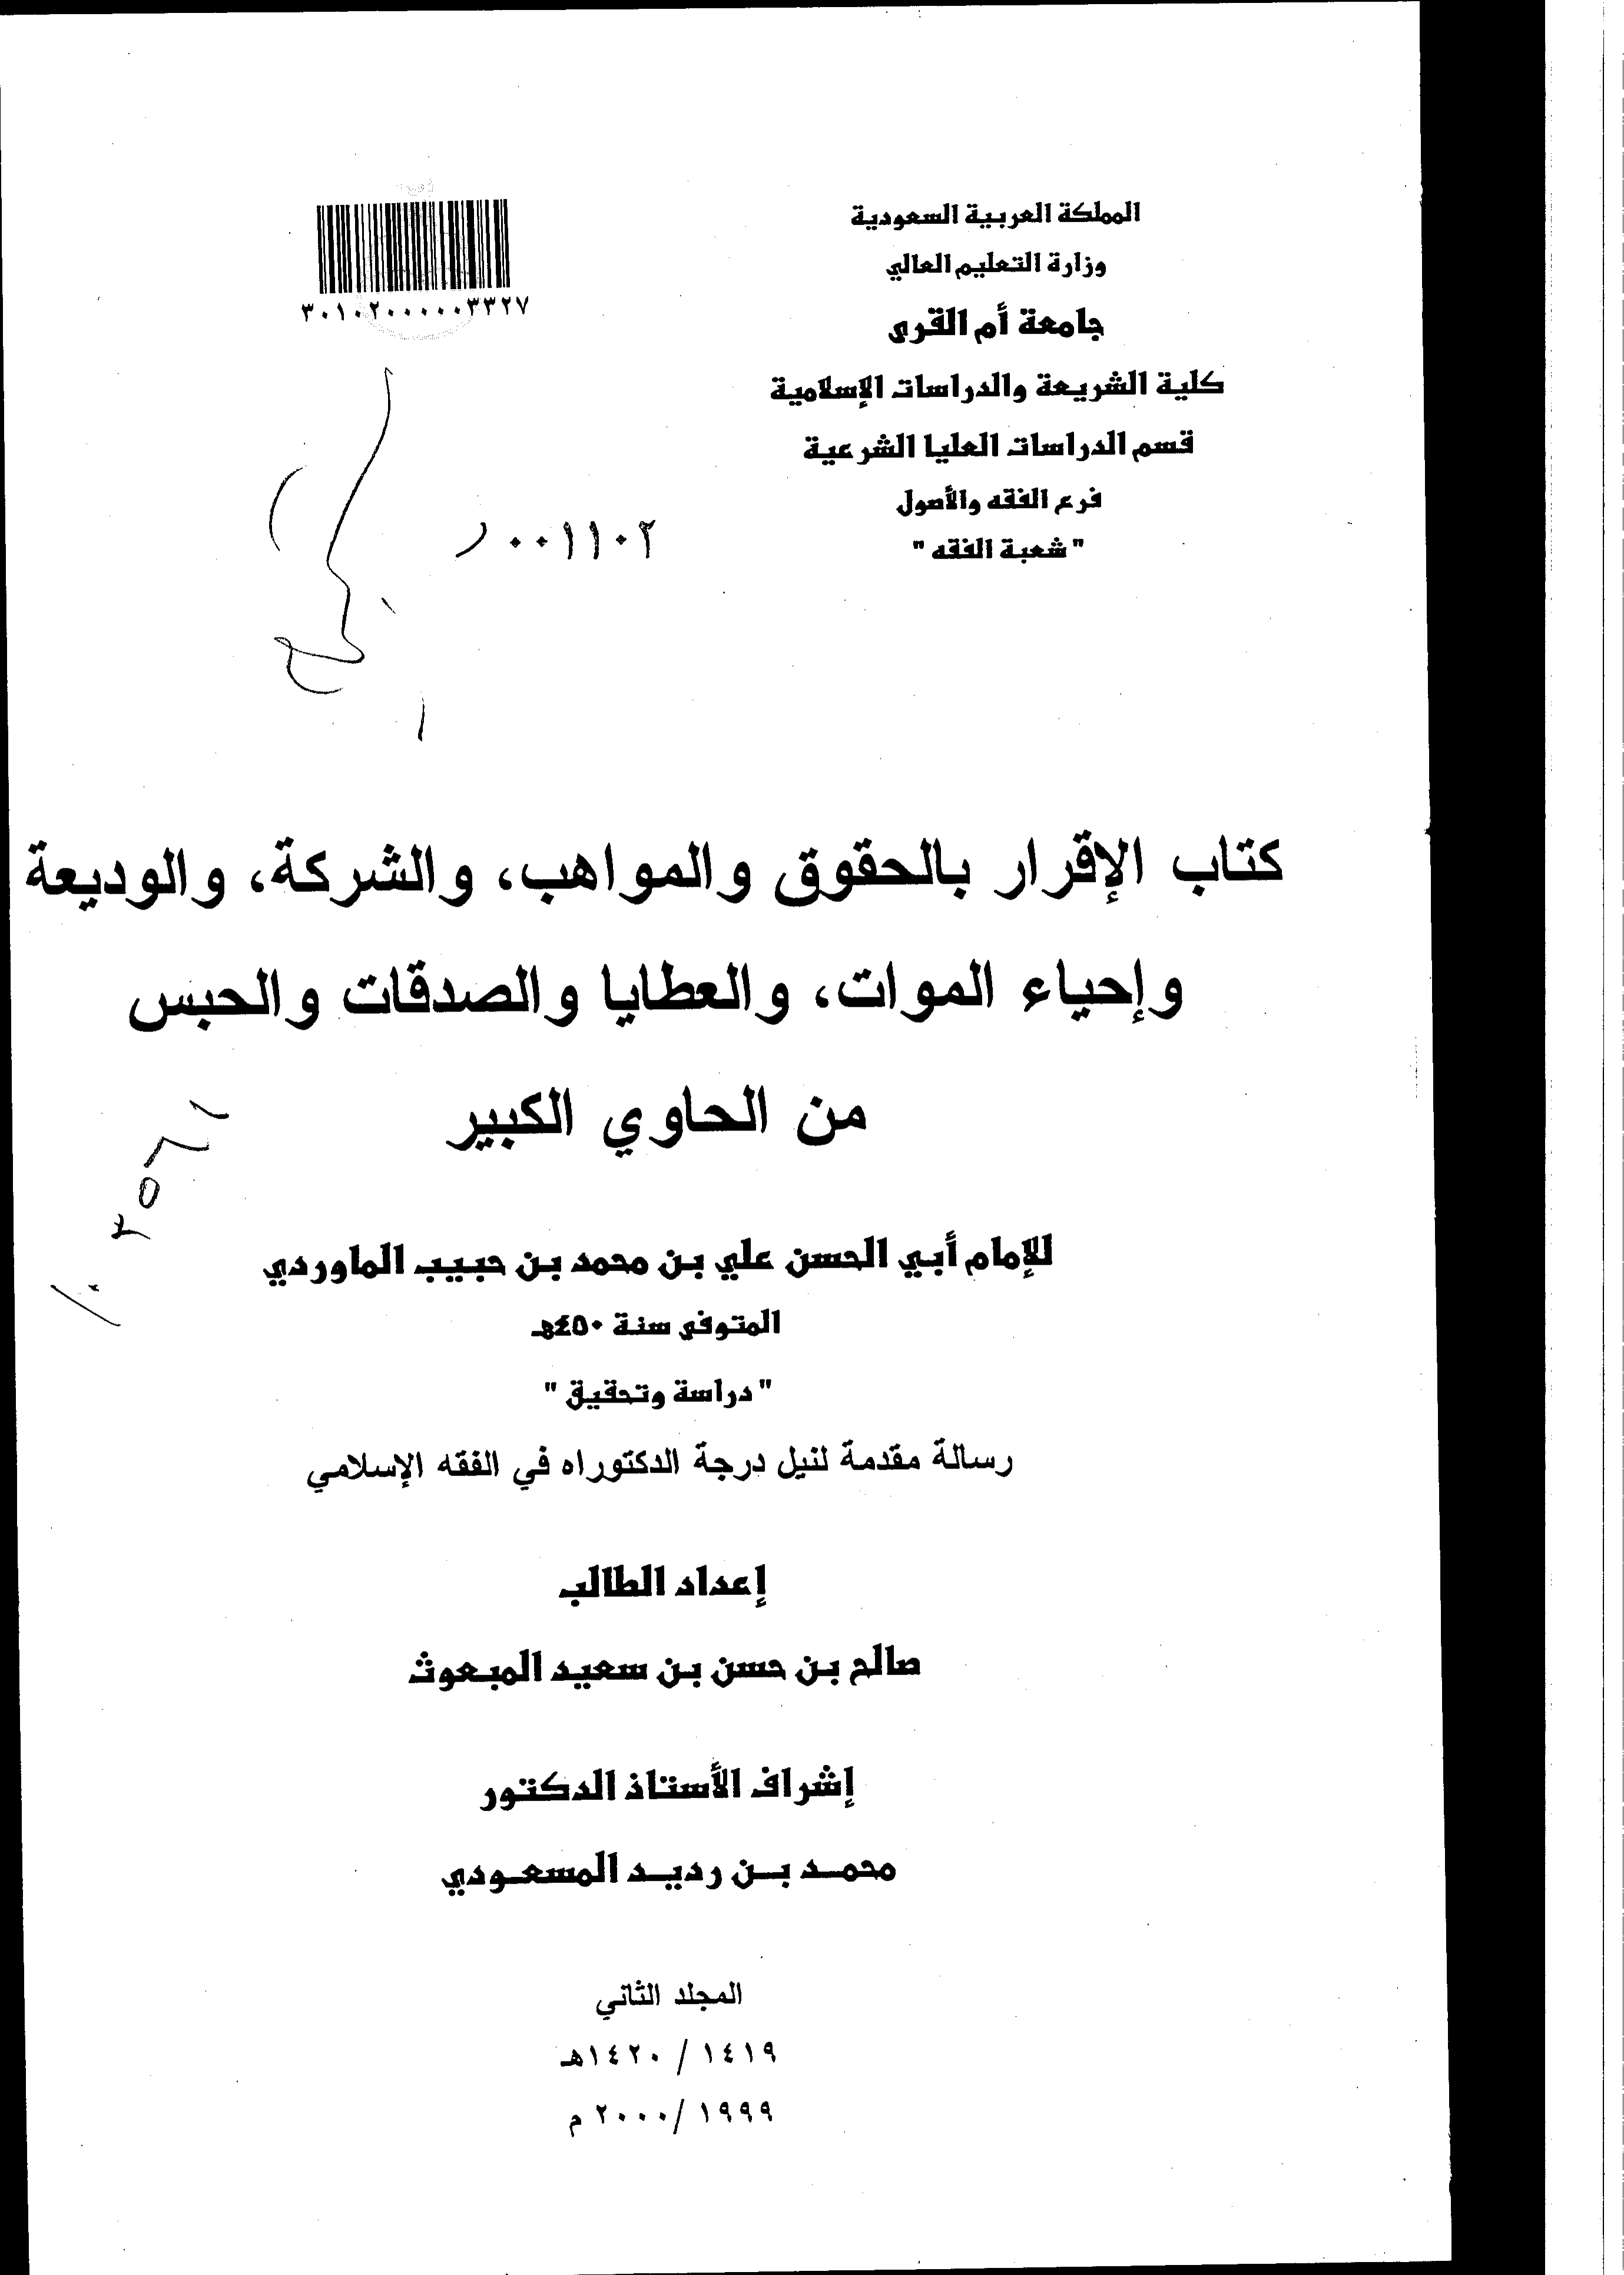 المملكة العربية السعودية
وزارة التعليم العالي
جامعة أم القرى
كلية الشريعة والدراسات الإسلامية
قسم الدراسات العليا الشرعية
فرع الفقه والأصول
"شعبة الفقه"
٣٠١٠٢٠٠٠٠٠٣٣٢٧
٠٠١١٠٢
كتاب الإقرار بالحقوق والمواهب، والشركة، والوديعة
وإحياء الموات، والعطايا والصدقات والحبس
من الحاوي الكبير
للإمام أبي الحسن علي بن محمد بن حبيب الماوردي
المتوفى سنة ٤٥٠هـ
"دراسة وتحقيق"
رسالة مقدمة لنيل درجة الدكتوراه في الفقه الإسلامي
إعداد الطالب
صالح بن حسن بن سعيد المبعوث
إشراف الأستاذ الدكتور
محمد بن رديد المسعودي
المجلد الثاني
١٤١٩ / ١٤٢٠هـ
١٩٩٩ /٢٠٠٠ م